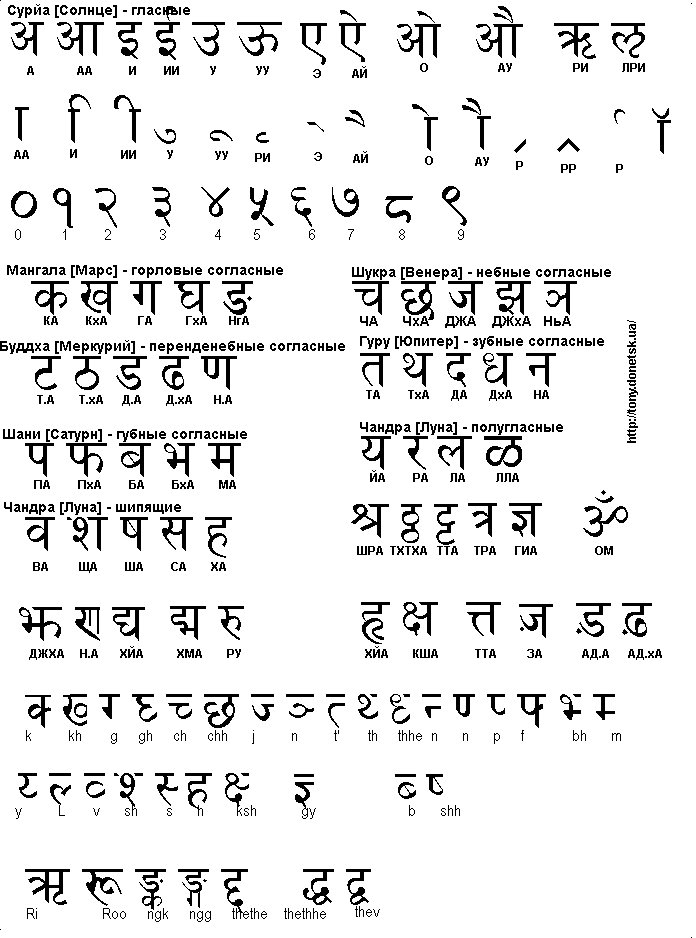 Сурйа [Солнце] - гласные
अ आ इ ई उ ऊ ए ऐ ओ औ ऋ ऌ
А АА И ИИ У УУ Э АЙ О АУ РИ ЛРИ
ा ि ी ु ू ृ े ै ो ौ
АА И ИИ У УУ РИ Э АЙ О АУ Р РР Р
० १ २ ३ ४ ५ ६ ७ ८ ९
0 1 2 3 4 5 6 7 8 9
Мангала [Марс] - горловые согласные
क ख ग घ ङ
КА КхА ГА ГхА НгА
Шукра [Венера] - небные согласные
च छ ज झ ञ
ЧА ЧхА ДЖА ДЖхА НьА
Буддха [Меркурий] - переденебные согласные
ट ठ ड ढ ण
Т.А Т.хА Д.А Д.хА Н.А
Гуру [Юпитер] - зубные согласные
त थ द ध न
ТА ТхА ДА ДхА НА
http://tony.donetsk.ua/
Шани [Сатурн] - губные согласные
प फ ब भ म
ПА ПхА БА БхА МА
Чандра [Луна] - полугласные
य र ल ळ
ЙА РА ЛА ЛЛА
Чандра [Луна] - шипящие
व श ष स ह
ВА ЩА ША СА ХА
श्र ठ्ठ ट्ट त्र ज्ञ ॐ
ШРА ТХТХА ТТА ТРА ГИА ОМ
झ ण द्य द्म रु
ДЖХА Н.А ХЙА ХМА РУ
हृ क्ष त्त ज़ ड़ ढ़
ХЙА КША ТТА ЗА АД.А АД.хА
k kh g gh ch chh j n t' th thhe n n p f bh m
y L v sh s h ksh gy b shh
ऋ रू ङ्क ङ्ग द्द द्ध द्व
Ri Roo ngk ngg thethe thethhe thev